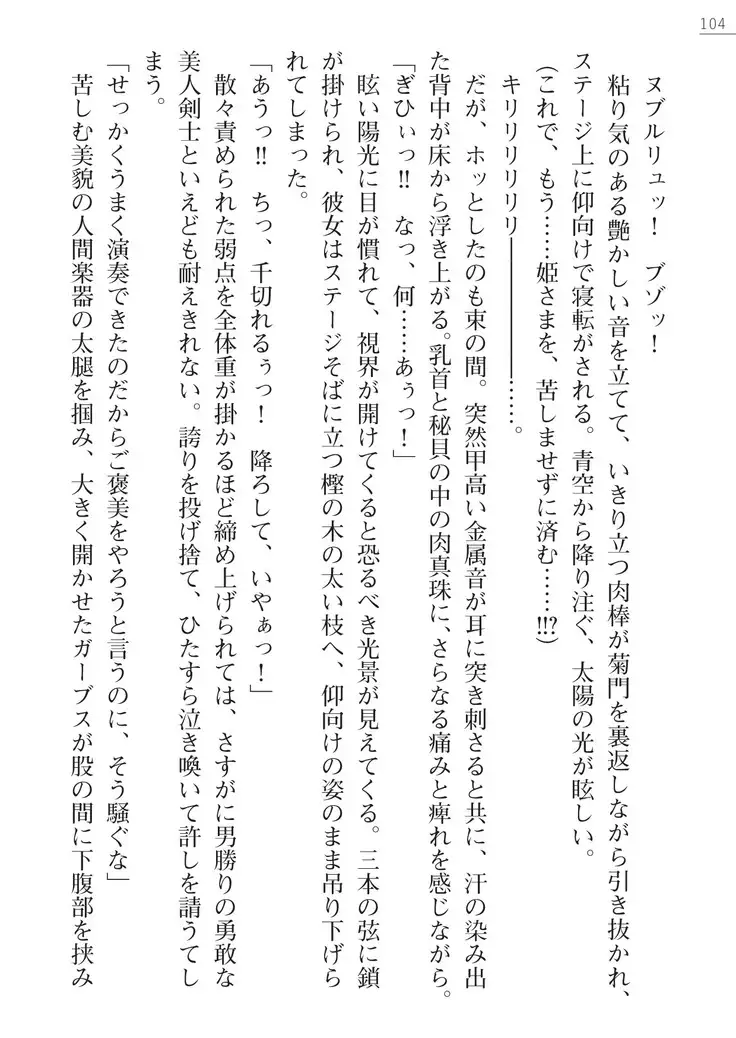 104
ヌブルリュッ！　ブゾッ！
粘り気のある艶かしい音を立てて、いきり立つ肉棒が菊門を裏返しながら引き抜かれ、
ステージ上に仰向けで寝転がされる。青空から降り注ぐ、太陽の光が眩しい。
（これで、もう……姫さまを、苦しませずに済む……!!?）
キリリリリリリ――――――……。
だが、ホッとしたのも束の間。突然甲高い金属音が耳に突き刺さると共に、汗の染み出
た背中が床から浮き上がる。乳首と秘貝の中の肉真珠に、さらなる痛みと痺れを感じながら。
「ぎひぃっ!!　なっ、何……あぅっ！」
眩い陽光に目が慣れて、視界が開けてくると恐るべき光景が見えてくる。三本の弦に鎖
が掛けられ、彼女はステージそばに立つ樫の木の太い枝へ、仰向けの姿のまま吊り下げら
れてしまった。
「あうっ!!　ちっ、千切れるぅっ！　降ろして、いやぁっ！」
散々責められた弱点を全体重が掛かるほど締め上げられては、さすがに男勝りの勇敢な
美人剣士といえども耐えきれない。誇りを投げ捨て、ひたすら泣き喚いて許しを請うてし
まう。
「せっかくうまく演奏できたのだからご褒美をやろうと言うのに、そう騒ぐな」
苦しむ美貌の人間楽器の太腿を掴み、大きく開かせたガーブスが股の間に下腹部を挟み